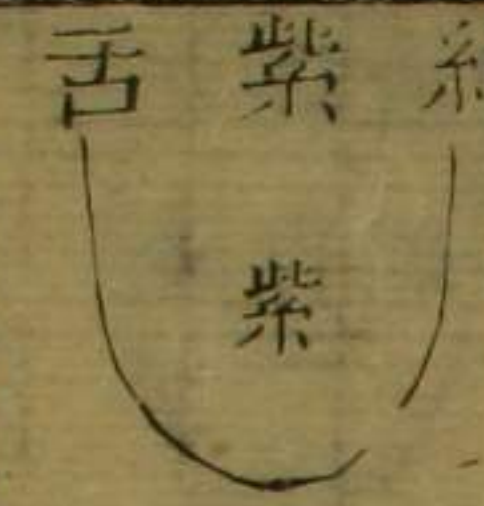 紫舌
紫